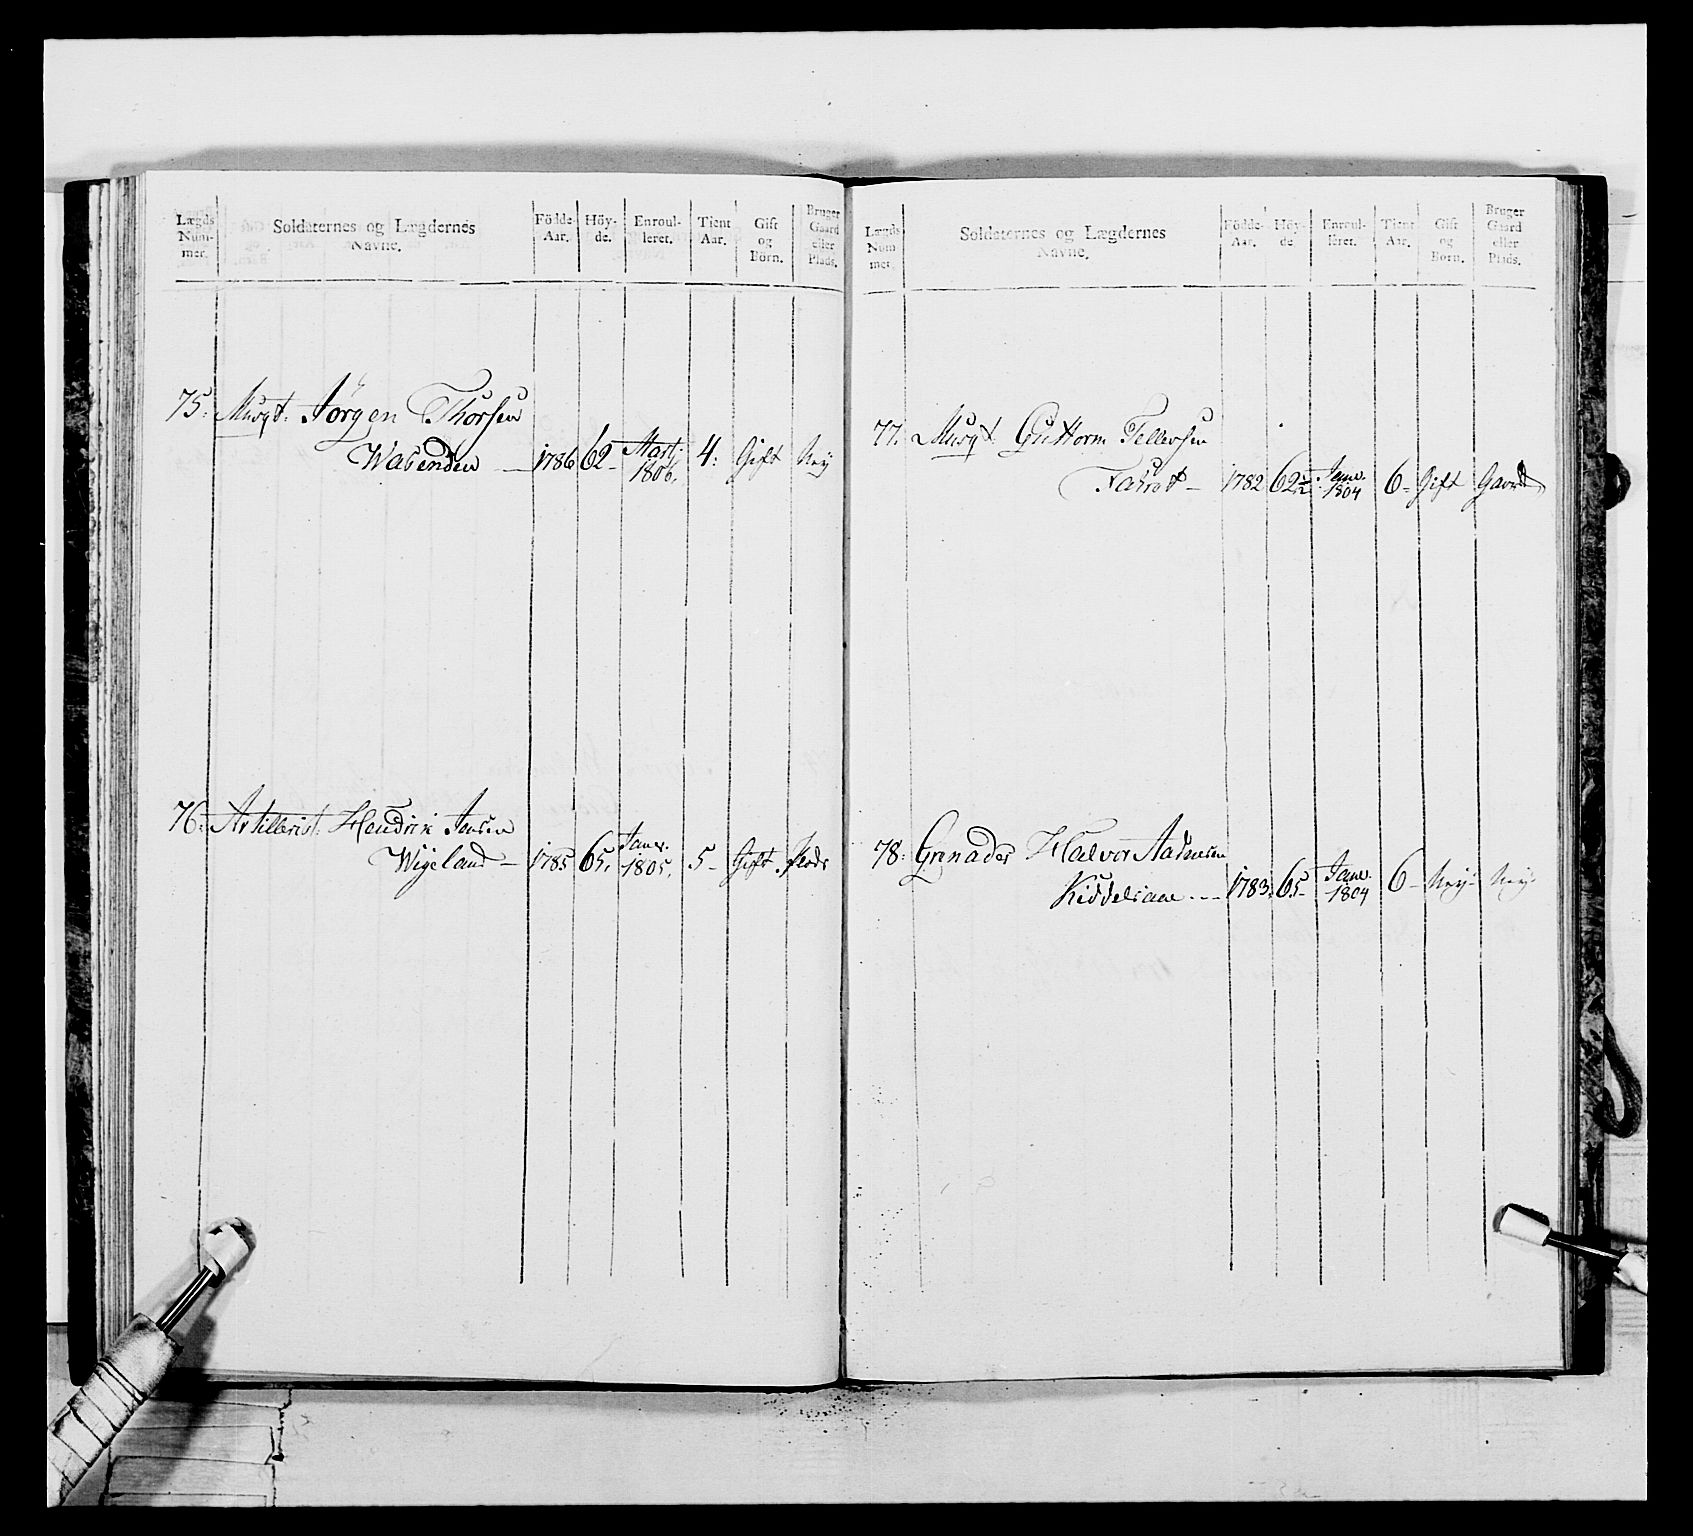 Lægds Num- mer.
Soldaternes og Lægdernes Navne.
Födde- Aar.
Höy- de.
Enroul- leret.
Tient Aar.
Gift og Börn.
Bruger Gaard eller Plads.
75. Musqt: Jörgen Thorsen
Wabenden — 1786 62 - Marti 1806. 4: Gift Neÿ
76: Artillerist: Hendrik Jensen
Wigeland — 1785 65. Janr. 1805. 5 - Gift Plads
Lægds Num mer.
Soldaternes og Lægdernes Navne.
Födde- Aar.
Höy- de
Enroul- leret.
Tient Aar.
Gift og Börn.
Bruger Gaard eller Plads.
77. Musqt: Guttorm Tellevsen
— 1782 62½ Janr. 1804 6 - Gift Gaard
78: Grenader Halvor Aadnesen
— 1783. 65 - Janr. 1804 6 - Neÿ - Neÿ -